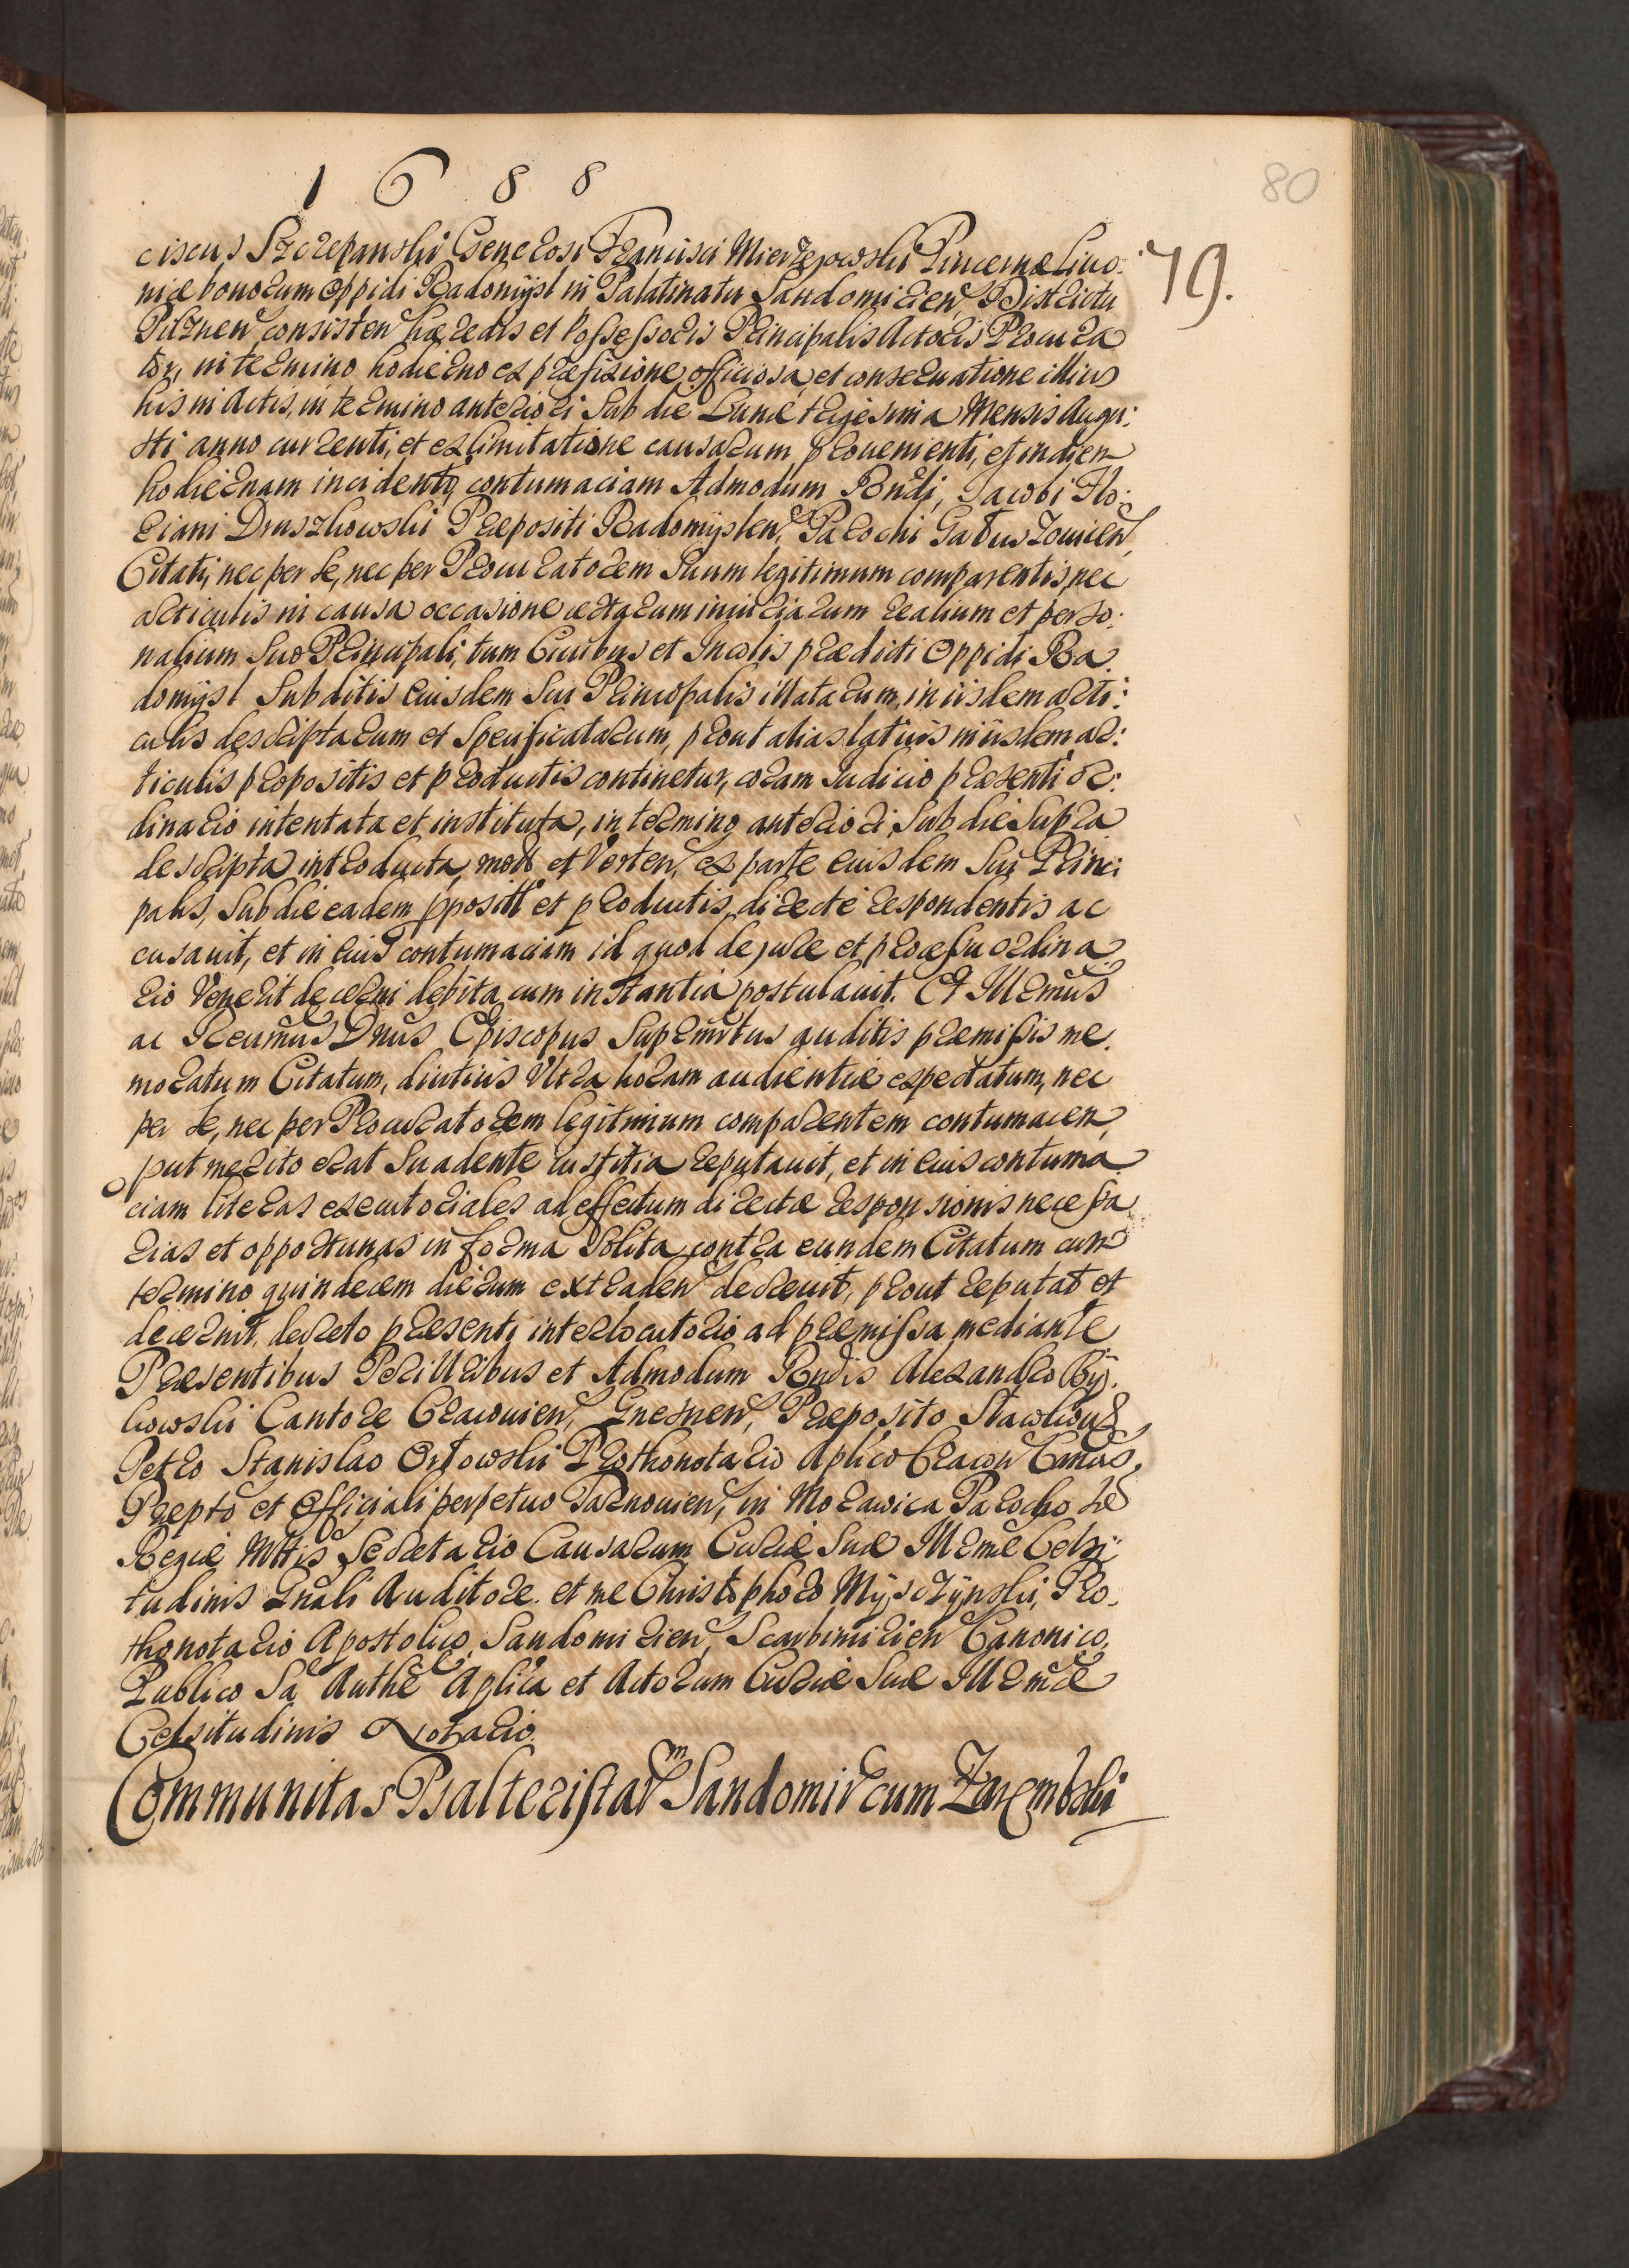 1 6 8 8
80
79.
ciscus Szczepanski Generosi Francisci Mierzejowski Pincernæ Livo:
niæ bonorum Oppidi Radomijsl in Palatinatu Sandomirien, Districtu
Pilznen consisten hæredis et Possessoris Principalis Actoris Procura
tor, in termino hodierno ex præfixione officiosa, et conservatione illius
his in Actis, in termino anteriori sub die Lunæ trigesima Mensis Augu:
sti anno currenti, et ex limitatione causarum provenienti, et in diem
hodiernam incidenti, contumaciam Admodum Rndi, Jacobi Flo:
riani Druszkowski Præpositi Radomijslen, Parochi
Citati, nec per se, nec per Procuratorem suum legitimum comparentis, nec
articulis in causa occasione certarum iniuriarum realium et perso:
nalium suo Principali, tum Civibus et Incolis prædicti Oppidi Ra.
domijsl Subditis eiusdem sui Principalis illatarum, in iisdem arti:
culis descriptarum et specificatarum, prout alias latius in iisdem ar:
ticulis propositis et productis continetur, coram Judicio præsenti or:
dinario intentata et instituta, in termino anteriori, sub die supra
descripta introducta, mota et Verten, ex parte eiusdem sui Princi
palis, sub die eadem ppositis et productis, directe respondentis ac
cusavit, et in eius contumaciam id quod de jure et processu ordina
rio venerit decerni debita cum instantia postulavit. Et Illrmus
ac Revmus Dnus Episcopus supranrtus auditis præmissis me.
moratum Citatum, diutius ultra horam audientiæ expectatum, nec
per se, nec per Procuratorem legitimum comparentem contumacem,
put merito erat suadente iustitia reputavit, et in eius contuma
ciam literas executoriales ad effectum directæ responsionis necessa
rias et opportunas in forma solita, contra eundem Citatum cum
termino quindecem dierum extraden decrevit, prout reputat et
decernit, decreto præsenti interlocutorio ad præmissa mediante
Præsentibus Perillribus et Admodum Rndis Alexandro Bij.
kowski Cantore Cracovien, Gnesnen, Præposito
Petro Stanislao Orłowski Prothonotario Aplico Cracovn Canus,
Præpto et Officiali perpetuo Tarnovien, in Morawica Parocho Sæ
Regiæ Mttis Secretario Causarum Curiæ Suæ Illrmæ Celsi:
tudinis Gnali Auditore. et me Christophoro Mijszczijnski, Pro.
thonotario Apostolico, Sandomirien, Scarbimirien Canonico,
Publico Sa Authe Aplica et Actorum Curiæ Suæ Illrmæ
Celsitudinis Notario.
Communitas Psalteristarm Sandomir cum Zarembski